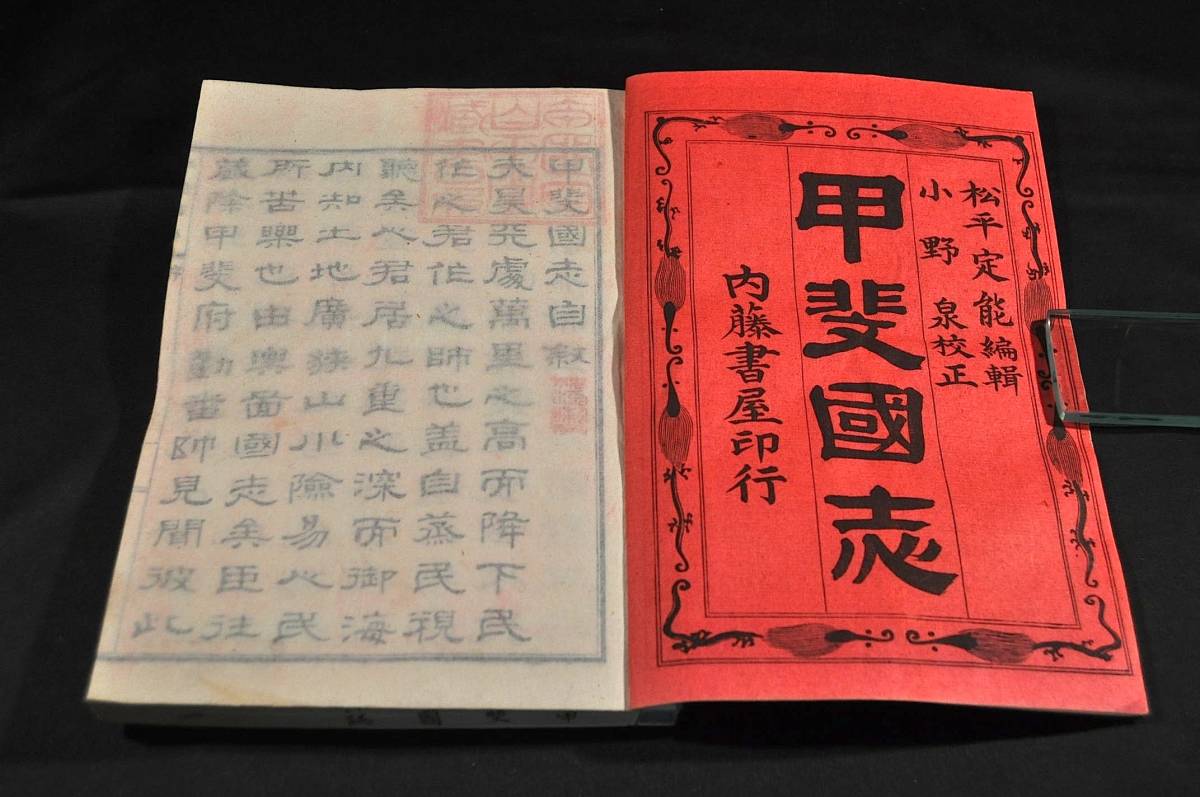 松平定能編輯
小野泉校正
甲斐國志
内藤書屋印行
甲斐國志自敘
夫昊天處萬里之高而降下民
作之君作之師也蓋自蒸民視
聽矣人君居九重之深而御海
内知土地廣狹山川險易人民
所苦樂也由輿啚國志矣臣往
歲降甲斐府勤番帥見聞彼此